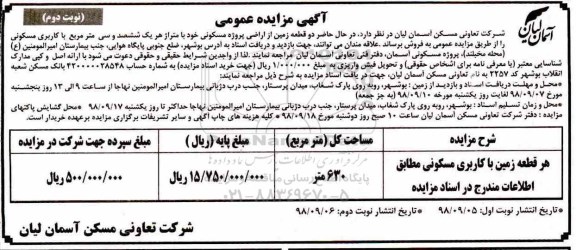 آگهی مزایده عمومی
(نوبت دوم)
آسمان لیان
شرکت تعاونی مسکن آسمان لیان در نظر دارد، در حال حاضر دو قطعه زمین از اراضی پروژه مسکونی خود با متراژ هر یک ششصد و سی متر مربع با کاربری مسکونی
را از طریق مزایده عمومی به فروش برساند. علاقه مندان می توانند، جهت بازدید و دریافت اسناد به آدرس بوشهر، ضلع جنوبی پایگاه هوایی، جنب بیمارستان امیرالمومنین (ع)
(محله مخبلند)، پروژه مسکونی آسمان، دفتر فنی تعاونی آسمان لیان مراجعه نمایند. لذا از واجدین شرایط حقیقی و حقوقی دعوت می شود با ارائه اصل و کپی مدارک
شناسایی معتبر (یا معرفی نامه برای اشخاص حقوقی) و تحویل فیش واریزی به مبلغ ۱/۰۰۰/۰۰۰ ریال (جهت خرید اسناد مزایده) به شماره حساب بانک مسکن شعبه
انقلاب بوشهر کد ۲۲۵۷ به نام تعاونی مسکن آسمان لیان، جهت دریافت اسناد مزایده به شرح ذیل مراجعه نمایند:
•محل و مهلت دریافت اسناد و بازدید از زمین: بوشهر، روبه روی پارک شغاب، میدان پرستار، جنب درب دژبانی بیمارستان امیرالمومنین نهاجا از ساعت ۹ الی ۱۲ روز پنجشنبه
مورخ ۹۸/۰۹/۰۷ لغایت روز یکشنبه مورخ ۹۸/۰۹/۱۰ (به جز جمعه)
•محل و زمان تسلیم اسناد: بوشهر، روبه روی پارک شغاب، میدان پرستار، جنب درب دژبانی بیمارستان امیرالمومنین نهاجا حداکثر تا روز یکشنبه ۹۸/۰۹/۱۷ •محل گشایش پاکتهای
مزایده: دفتر شرکت تعاونی مسکن آسمان لیان ساعت ۱۰ صبح روز دوشنبه مورخ ۹۸/۰۹/۱۸ •کلیه هزینه های چاپ آگهی و سایر تشریفات برگزاری مزایده برعهده خریدار است.
شرح مزایده | مساحت کل (متر مربع) | مبلغ پایه (ریال) | مبلغ سپرده جهت شرکت در مزایده
هر قطعه زمین با کاربری مسکونی مطابق اطلاعات مندرج در اسناد مزایده | ۶۳۰ متر | ۱۵/۷۵۰/۰۰۰/۰۰۰ ریال | ۵۰۰/۰۰۰/۰۰۰ ریال
•تاریخ انتشار نوبت اول: ۹۸/۰۹/۰۵ •تاریخ انتشار نوبت دوم: ۹۸/۰۹/۰۶
شرکت تعاونی مسکن آسمان لیان
۰۲۱-۸۸۳۴۹۶۷۰-۵